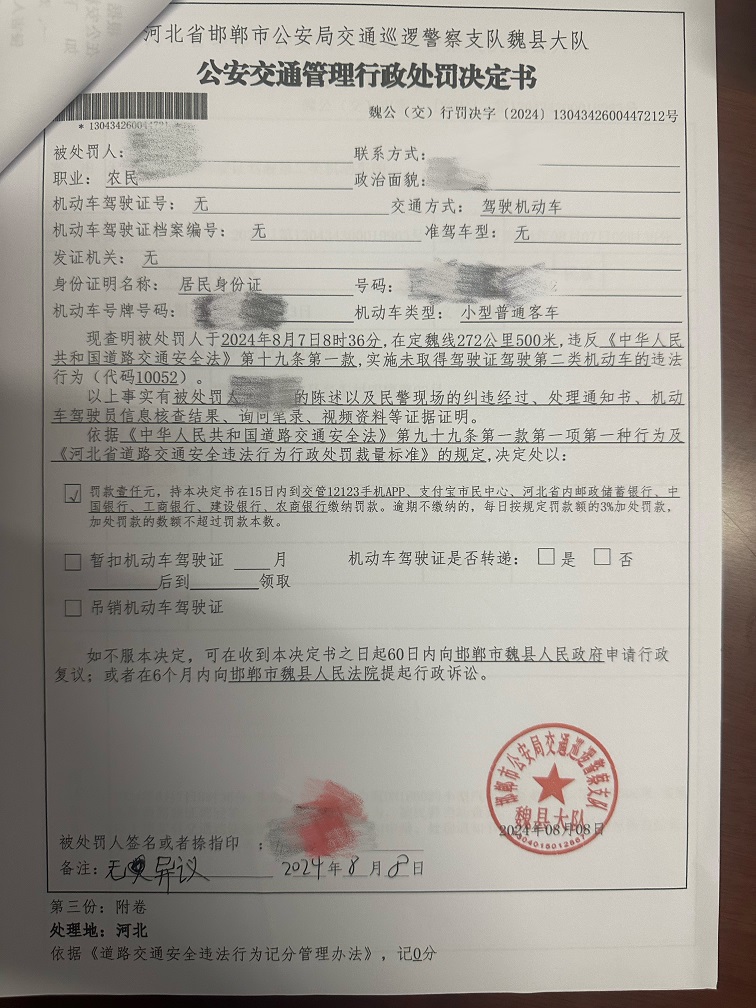 河北省邯郸市公安局交通巡逻警察支队魏县大队
公安交通管理行政处罚决定书
魏公（交）行罚决字〔2024〕1304342600447212号
被处罚人：
联系方式：
职业： 农民
政治面貌：
机动车驾驶证号： 无
交通方式： 驾驶机动车
机动车驾驶证档案编号： 无
准驾车型： 无
发证机关： 无
身份证明名称： 居民身份证
号码：
机动车号牌号码：
机动车类型： 小型普通客车
现查明被处罚人于2024年8月7日8时36分，在定魏线272公里500米，违反《中华人民
共和国道路交通安全法》第十九条第一款，实施未取得驾驶证驾驶第二类机动车的违法
行为（代码10052）。
以上事实有被处罚人 的陈述以及民警现场的纠违经过、处理通知书、机动
车驾驶员信息核查结果、询问笔录、视频资料等证据证明。
依据《中华人民共和国道路交通安全法》第九十九条第一款第一项第一种行为及
《河北省道路交通安全违法行为行政处罚裁量标准》的规定，决定处以：
☑ 罚款壹仟元，持本决定书在15日内到交管12123手机APP、支付宝市民中心、河北省内邮政储蓄银行、中
国银行、工商银行、建设银行、农商银行缴纳罚款。逾期不缴纳的，每日按规定罚款额的3%加处罚款，
加处罚款的数额不超过罚款本数。
□ 暂扣机动车驾驶证 ____月 机动车驾驶证是否转递：□ 是 □ 否
______后到______领取
□ 吊销机动车驾驶证
如不服本决定，可在收到本决定书之日起60日内向邯郸市魏县人民政府申请行政
复议；或者在6个月内向邯郸市魏县人民法院提起行政诉讼。
邯郸市公安局交通巡逻警察支队
魏县大队
2024年08月08日
被处罚人签名或者捺指印 ：
备注：无异议 2024年8月8日
第三份：附卷
处理地：河北
依据《道路交通安全违法行为记分管理办法》，记0分